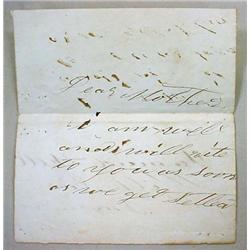 Dear Mother
I am well
and will rite
to you as soon
as we get Settle